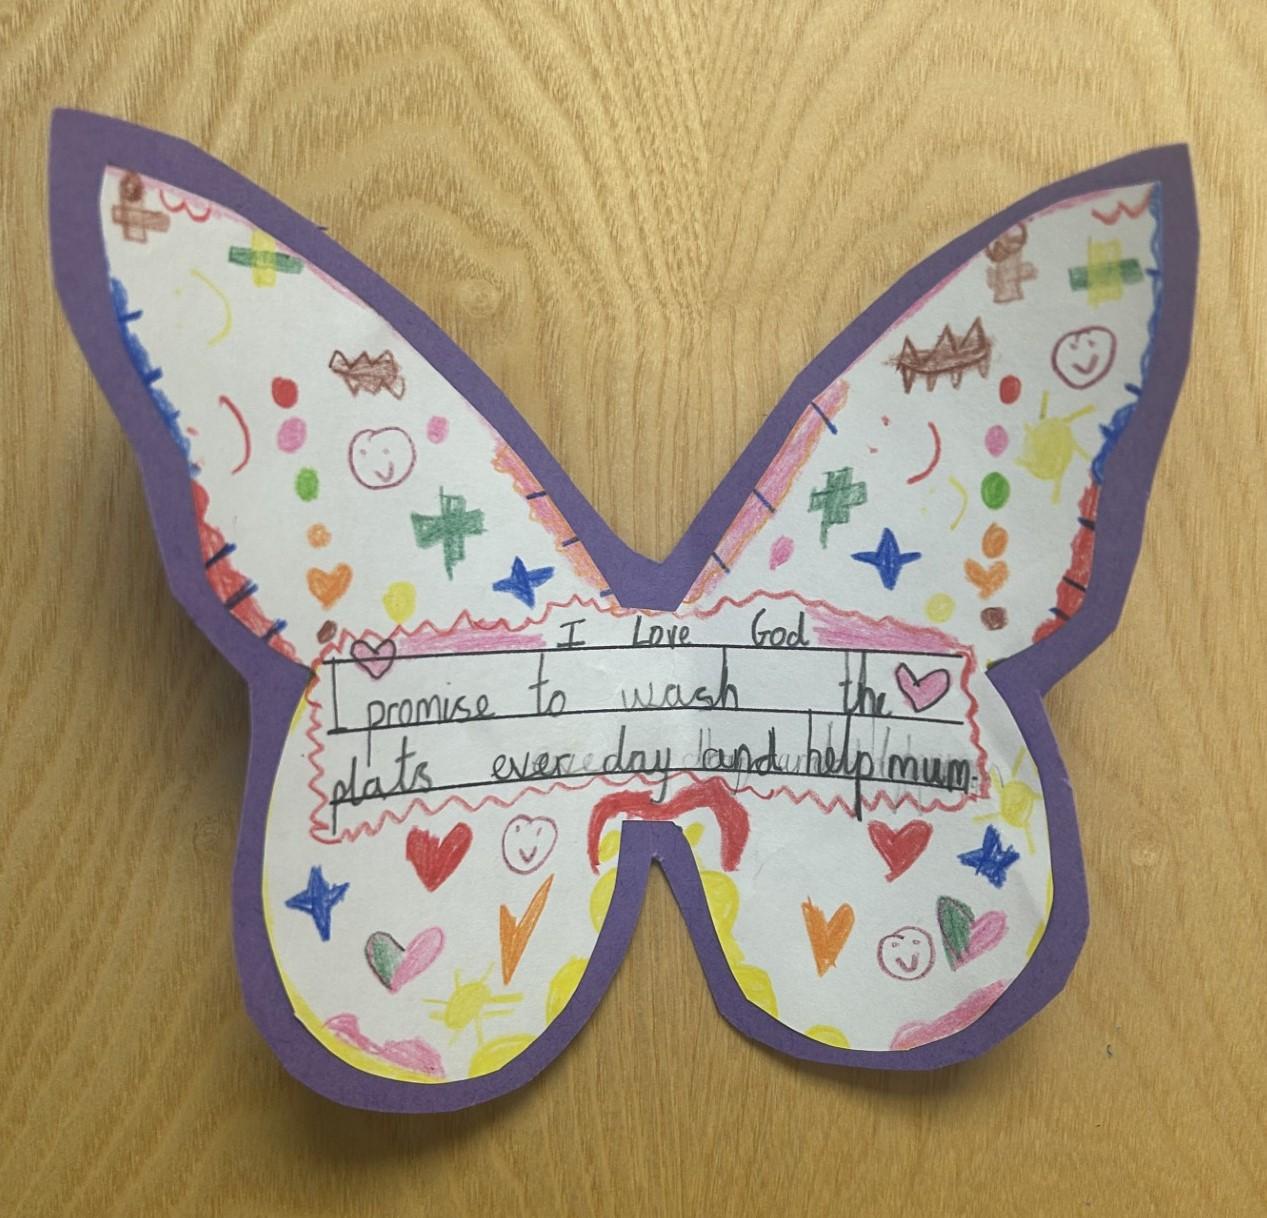 I Love God
I promise to wash the
plats evereday and help mum.